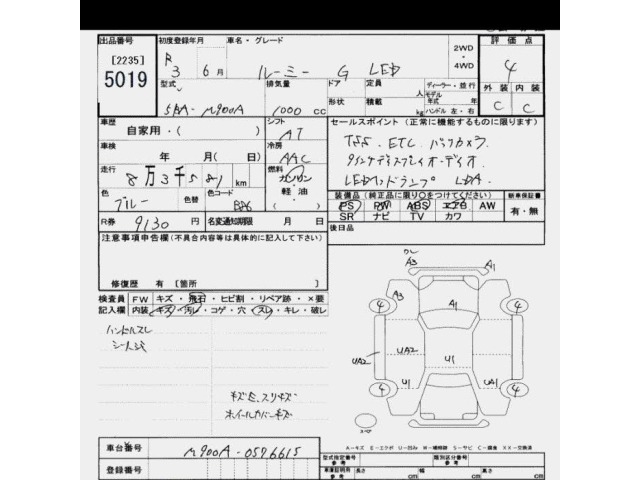 出品番号 初度登録年月 車名・グレード 2WD ・ 4WD 評価点
[2235] 5019 R 3 6月 ルーミー G LED 4
型式 排気量 ドア 定員 人 ディーラー・並行 外装 内装
5BA-M900A 1000 cc 形状 積載 kg モデル 年式 年 ハンドル 左・右 C C
車歴 シフト セールスポイント（正常に機能するものに限ります）
自家用・( ) AT TSS. ETC. バックカメラ
車検 年 月(日) 冷房 AAC
走行 8万3千581km 燃料 ガソリン 軽油 ( ) LEDヘッドランプ LDA.
色 ブルー 色替 色コード B86 装備品（純正品に限り○をつけてください） 新車保証書
PS PW ABS エアB AW 有・無
R券 9130 円 名変通知期限 月 日 SR ナビ TV カワ
注意事項申告欄(不具合内容等は具体的に記入して下さい) 後日品
修復歴 有 [箇所 ]
検査員 FW キズ・飛石・ヒビ割・リペア跡・×要
記入欄 内装 キズ・汚レ・コゲ・穴・スレ・キレ・破レ
ハンドルスレ
A3 A1
A3 A1
4 4
UA2 UA2 U1
U1 UA1
4 4
ホイールカバーキズ
スペア
A－キズ E－エクボ U－凹み W－補修跡 S－サビ C－腐食 XX－交換済
車台番号 M900A-0576615
型式指定番号 参考 類別区分番号 参考
登録番号 車庫証明用 参考 長さ cm 幅 cm 高さ cm